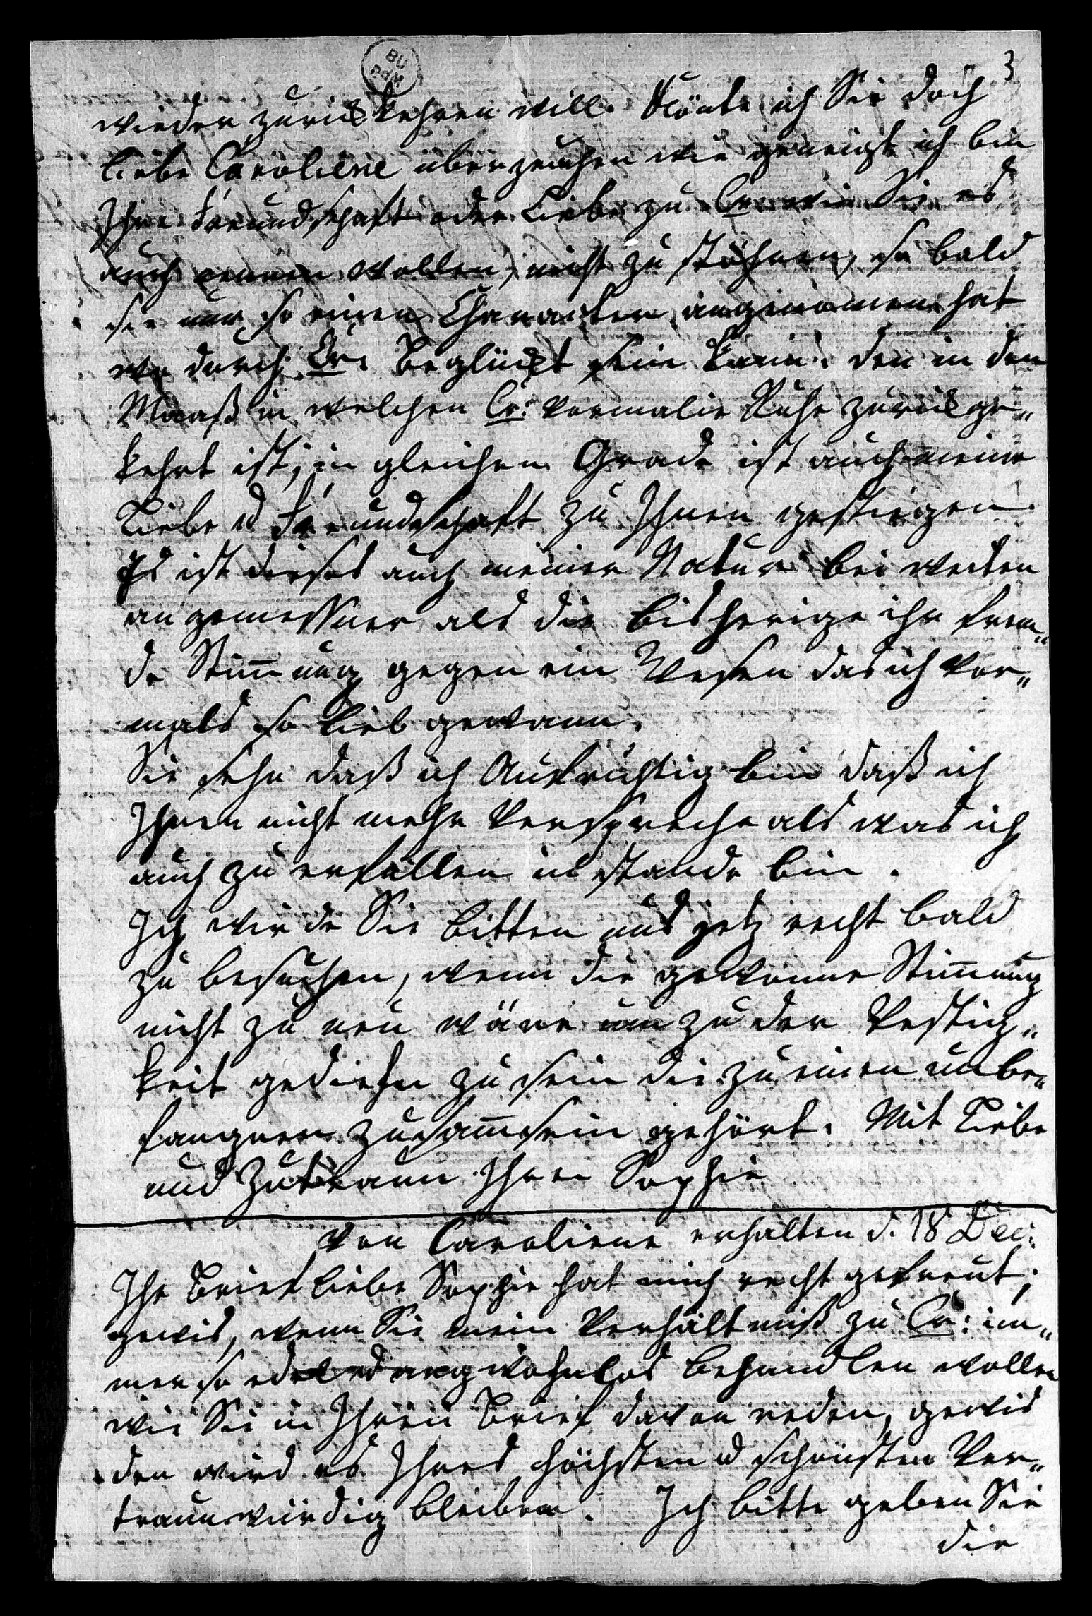 3
wieder zurük kehren will. Könte ich Sie doch
liebe Caroline überzeuchen wie geneigt ich bin
Ihre Freundschaft oder Liebe zu Cr: wie Sie es
auch nennen wollen, nicht zu stöhren, so bald
sie nur so einen Charackter angenommen hat
wo durch Cr: Beglückt sein kann. den in den
Maaß in welchen Cr: vormalie Ruhe zurük ge„
kehrt ist, in gleichen Grade ist auch meine
Liebe u Freundschaft zu Ihnen gestiegen
Es ist dieses auch meiner Natur bei weiten
angemessner als die bisherige ihr frem„
de Stimung gegen ein Wesen das ich vor„
mals so lieb gewann.
Sie sehn daß ich Aufrichtig bin daß ich
Ihnen nicht mehr verspreche als was ich
auch zu erfüllen im stande bin.
Ich würde Sie bitten uns jetz recht bald
zu besuchen, wenn die gewonne Stimung
nicht zu neu wäre um zu der Vestig„
keit gediehn zu sein die zu einen unbe„
fangnen zusamsein gehört. Mit Liebe
und Zutraun Ihre Sophie
von Caroliene erhalten d. 18 Dec:
Ihr Brief liebe Sophie hat mich recht gefreut;
gewis, wenn Sie mein Verhältniß zu Cr: im„
mer so edel und argwohnlos behandlen wollen
wie Sie in Ihren Brief davon reden, gewis
den wird es Ihres höchsten u schönsten Ver„
traun würdig bleiben. Ich bitte geben Sie
die